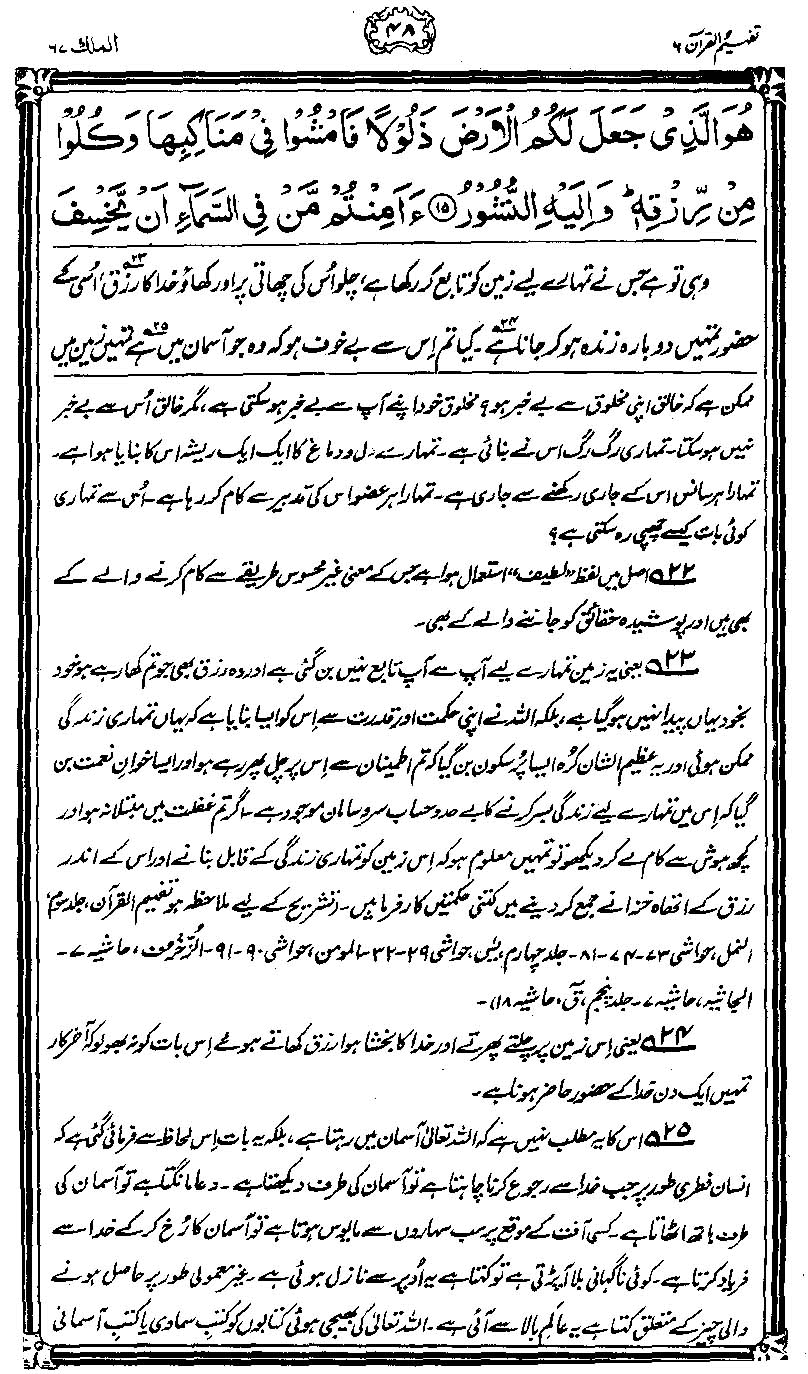 تفہیم القرآن ۶
۴۸
الملک ۶۷
هُوَ الَّذِىْ جَعَلَ لَكُمُ الْاَرْضَ ذَلُوْلًا فَامْشُوْا فِىْ مَنَاكِبِهَا وَكُلُوْا
مِنْ رِّزْقِهٖ ؕ وَاِلَيْهِ النُّشُوْرُ ۱۵ ءَاَمِنْتُمْ مَّنْ فِى السَّمَآءِ اَنْ يَّخْسِفَ
وہی تو ہے جس نے تمہارے لیے زمین کو تابع کر رکھا ہے، چلو اُس کی چھاتی پر اور کھاؤ خدا کا رزق،۲۳ اُسی کے
حضور تمہیں دوبارہ زندہ ہو کر جانا ہے۔۲۴ کیا تم اِس سے بے خوف ہو کہ وہ جو آسمان میں ہے۲۵ تمہیں زمین میں
ممکن ہے کہ خالق اپنی مخلوق سے بے خبر ہو؟ مخلوق خود اپنے آپ سے بے خبر ہو سکتی ہے، مگر خالق اُس سے بے خبر
نہیں ہو سکتا۔ تمہاری رگ رگ اس نے بنائی ہے۔ تمہارے دل و دماغ کا ایک ایک ریشہ اس کا بنایا ہوا ہے۔
تمہارا ہر سانس اس کے جاری رکھنے سے جاری ہے۔ تمہارا ہر عضو اس کی تدبیر سے کام کر رہا ہے۔ اُس سے تمہاری
کوئی بات کیسے چھپی رہ سکتی ہے؟
۲۲ اصل میں لفظ “لطیف” استعمال ہوا ہے جس کے معنی غیر محسوس طریقے سے کام کرنے والے کے
بھی ہیں اور پوشیدہ حقائق کو جاننے والے کے بھی۔
۲۳ یعنی یہ زمین تمہارے لیے آپ سے آپ تابع نہیں بن گئی ہے اور وہ رزق بھی جو تم کھا رہے ہو خود
بخود یہاں پیدا نہیں ہو گیا ہے، بلکہ اللہ نے اپنی حکمت اور قدرت سے اِس کو ایسا بنایا ہے کہ یہاں تمہاری زندگی
ممکن ہوئی اور یہ عظیم الشان کُرہ ایسا پُر سکون بن گیا کہ تم اطمینان سے اِس پر چل پھر رہے ہو اور ایسا خوانِ نعمت بن
گیا کہ اِس میں تمہارے لیے زندگی بسر کرنے کا بے حد و حساب سر و سامان موجود ہے۔ اگر تم غفلت میں مبتلا نہ ہو اور
کچھ ہوش سے کام لے کر دیکھو تو تمہیں معلوم ہو کہ اِس زمین کو تمہاری زندگی کے قابل بنانے اور اس کے اندر
رزق کے اتھاہ خزانے جمع کر دینے میں کتنی حکمتیں کارفرما ہیں۔ (تشریح کے لیے ملاحظہ ہو تفہیم القرآن، جلد سوم،
النمل، حواشی ۷۳-۷۴-۸۱۔ جلد چہارم، یٰس، حواشی ۲۹-۳۲۔ المومن، حواشی ۹۰-۹۱۔ الزُّخرُف، حاشیہ ۷۔
الجاثیہ، حاشیہ ۷۔ جلد پنجم، قٓ، حاشیہ ۱۸)۔
۲۴ یعنی اِس زمین پر چلتے پھرتے اور خدا کا بخشا ہوا رزق کھاتے ہوئے اِس بات کو نہ بھولو کہ آخر کار
تمہیں ایک دن خدا کے حضور حاضر ہونا ہے۔
۲۵ اس کا یہ مطلب نہیں ہے کہ اللہ تعالیٰ آسمان میں رہتا ہے، بلکہ یہ بات اِس لحاظ سے فرمائی گئی ہے کہ
انسان فطری طور پر جب خدا سے رجوع کرنا چاہتا ہے تو آسمان کی طرف دیکھتا ہے۔ دعا مانگتا ہے تو آسمان کی
طرف ہاتھ اٹھاتا ہے۔ کسی آفت کے موقع پر سب سہاروں سے مایوس ہوتا ہے تو آسمان کا رُخ کر کے خدا سے
فریاد کرتا ہے۔ کوئی ناگہانی بلا آ پڑتی ہے تو کہتا ہے یہ اُوپر سے نازل ہوئی ہے۔ غیر معمولی طور پر حاصل ہونے
والی چیز کے متعلق کہتا ہے یہ عالَمِ بالا سے آئی ہے۔ اللہ تعالیٰ کی بھیجی ہوئی کتابوں کو کتبِ سماوی یا کتبِ آسمانی